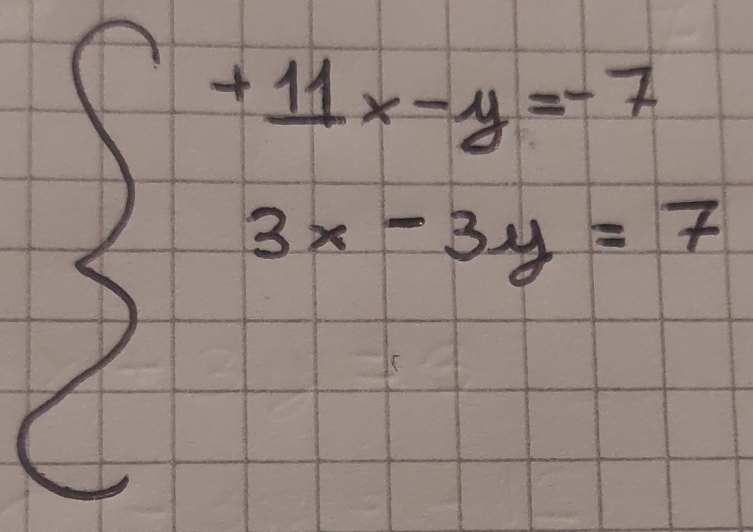 +11x-y=-7
3x-3y=7